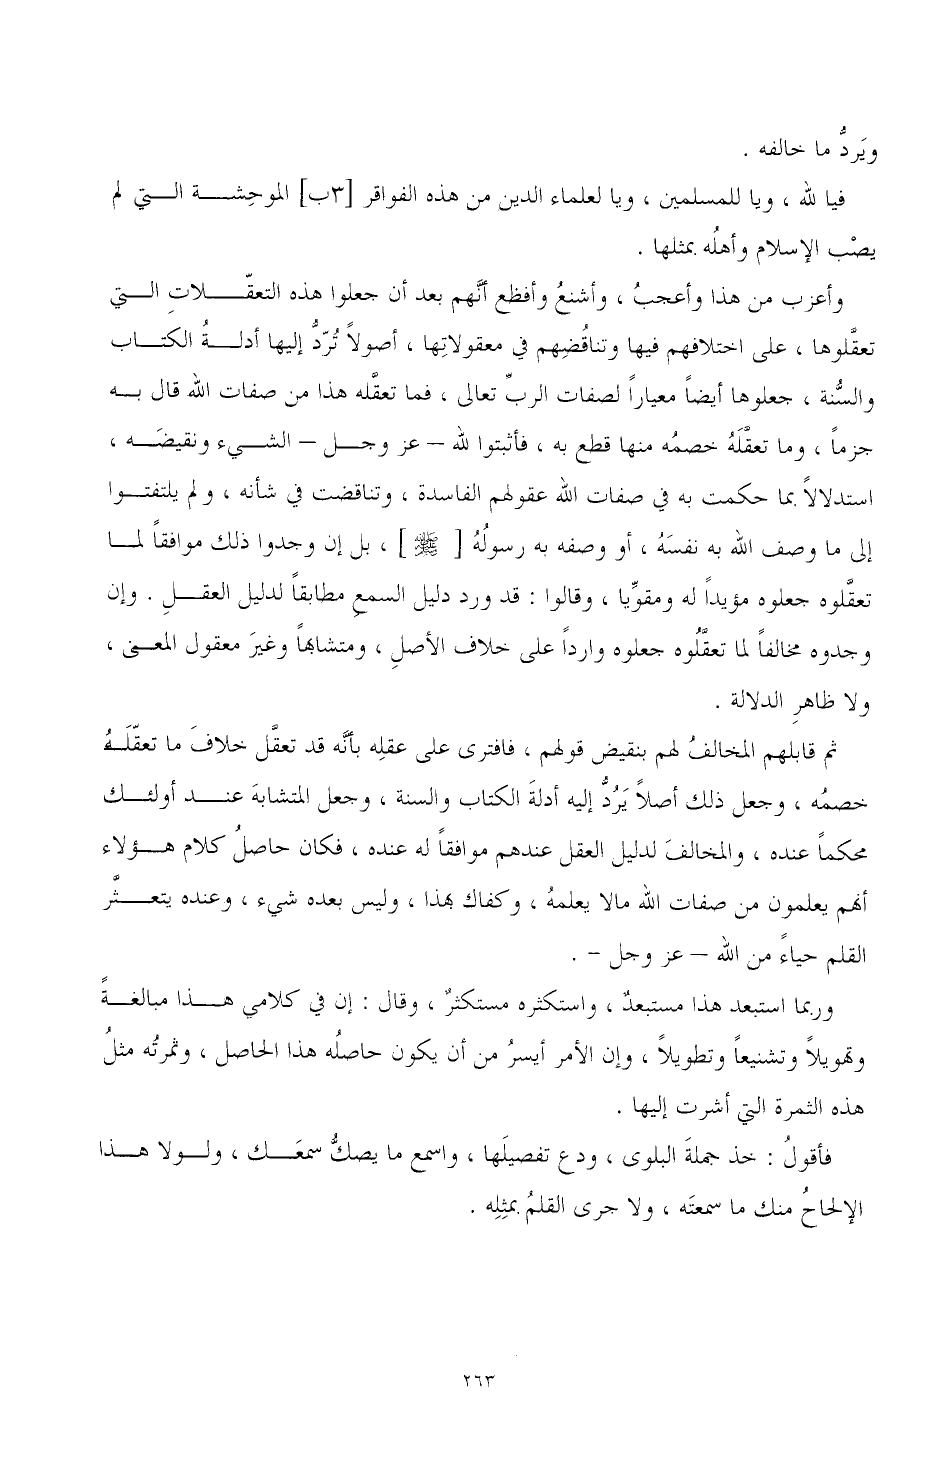 ويَردُّ ما خالفه .
فيا لله ، ويا للمسلمين ، ويا لعلماء الدين من هذه الفواقر [٣ب] الموحِشة التي لم
يصْب الإسلام وأهلُه بمثلها .
وأعزب من هذا وأعجبُ ، وأشنعُ وأفظع أنَّهم بعد أن جعلوا هذه التعقّلاتِ التي
تعقَّلوها ، على اختلافهم فيها وتناقُضِهم في معقولاتِها ، أصولاً تُرّدُّ إليها أدلةُ الكتاب
والسُّنة ، جعلوها أيضاً معياراً لصفات الربِّ تعالى ، فما تعقَّله هذا من صفات الله قال به
جزماً ، وما تعقَّلَهُ خصمُه منها قطع به ، فأثبتوا لله – عز وجل – الشيء ونقيضَه ،
استدلالاً بما حكمت به في صفات الله عقولهم الفاسدة ، وتناقضت في شأنه ، ولم يلتفتوا
إلى ما وصف الله به نفسَهُ ، أو وصفه به رسولُهُ [ ﷺ ] ، بل إن وجدوا ذلك موافقاً لما
تعقَّلوه جعلوه مؤيداً له ومقوِّيا ، وقالوا : قد ورد دليل السمعِ مطابقاً لدليل العقلِ . وإن
وجدوه مخالفاً لما تعقَّلُوه جعلوه وارداً على خلاف الأصلِ ، ومتشابهاً وغيرَ معقول المعنى ،
ولا ظاهرِ الدلالة .
ثم قابلهم المخالفُ لهم بنقيض قولهم ، فافترى على عقلِه بأنَّه قد تعقَّل خلافَ ما تعقّلَهُ
خصمُه ، وجعل ذلك أصلاً يَرُدُّ إليه أدلةَ الكتاب والسنة ، وجعل المتشابهَ عند أولئك
محكماً عنده ، والمخالفَ لدليل العقل عندهم موافقاً له عنده ، فكان حاصلُ كلام هؤلاء
أنهم يعلمون من صفات الله مالا يعلمهُ ، وكفاك بهذا ، وليس بعده شيء ، وعنده يتعثَّر
القلم حياءً من الله – عز وجل - .
وربما استبعد هذا مستبعدٌ ، واستكثره مستكثرٌ ، وقال : إن في كلامي هذا مبالغةً
وتهويلاً وتشنيعاً وتطويلاً ، وإن الأمر أيسرُ من أن يكون حاصلُه هذا الحاصل ، وثمرتُه مثلُ
هذه الثمرة التي أشرت إليها .
فأقولُ : خذ جملةَ البلوى ، ودع تفصيلَها ، واسمع ما يصكُّ سمعَك ، ولولا هذا
الإلحاحُ منك ما سمعتَه ، ولا جرى القلمُ بمثِلِه .
٢٦٣